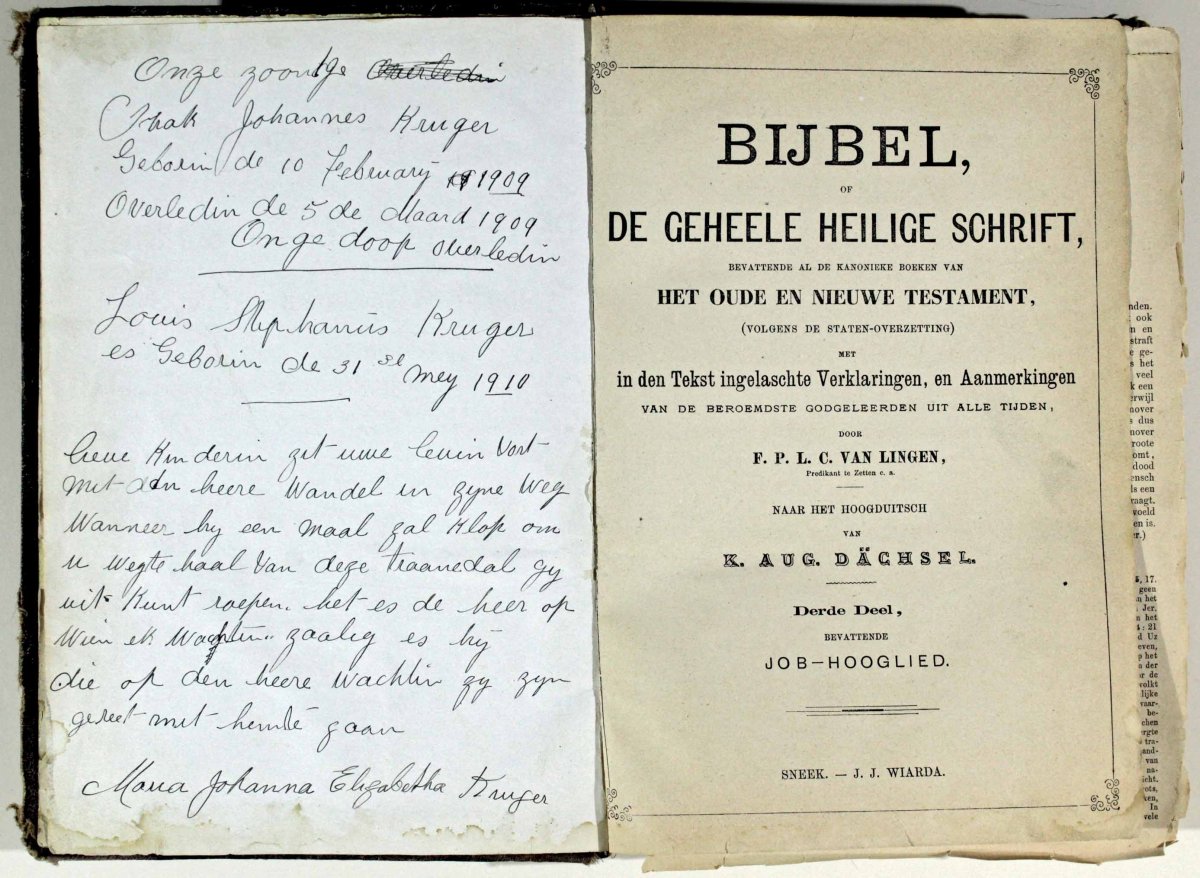 Onze zoontge overledin
Isak Johannes Kruger
Geborin de 10 February 1909
Overledin de 5 de Maard 1909
Onge doop overledin
Louis Stephanus Kruger
es Geborin de 31 st Mey 1910
lieve Kinderin zet uwe levin Vort
Met den heere Wandel in zyne Weg
Wanneer hy een maal zal Klop om
u Wegte haal Van deze traanedal gy
uit Kunt roepen. het es de heer op
Wien ek Wachten.. zaalig es hy
die op den heere Wachtin gy zyn
gereet met hem te gaan
Maria Johanna Elizabetha Kruger
BIJBEL,
OF
DE GEHEELE HEILIGE SCHRIFT,
BEVATTENDE AL DE KANONIEKE BOEKEN VAN
HET OUDE EN NIEUWE TESTAMENT,
(VOLGENS DE STATEN-OVERZETTING)
MET
in den Tekst ingelaschte Verklaringen, en Aanmerkingen
VAN DE BEROEMDSTE GODGELEERDEN UIT ALLE TIJDEN,
DOOR
F. P. L. C. VAN LINGEN,
Predikant te Zetten c. a.
NAAR HET HOOGDUITSCH
VAN
K. AUG. DÄCHSEL.
Derde Deel,
BEVATTENDE
JOB—HOOGLIED.
SNEEK. — J. J. WIARDA.